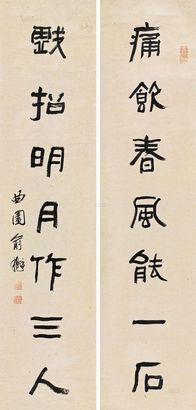 痛飲春風能一石
戲招明月作三人
曲園俞樾